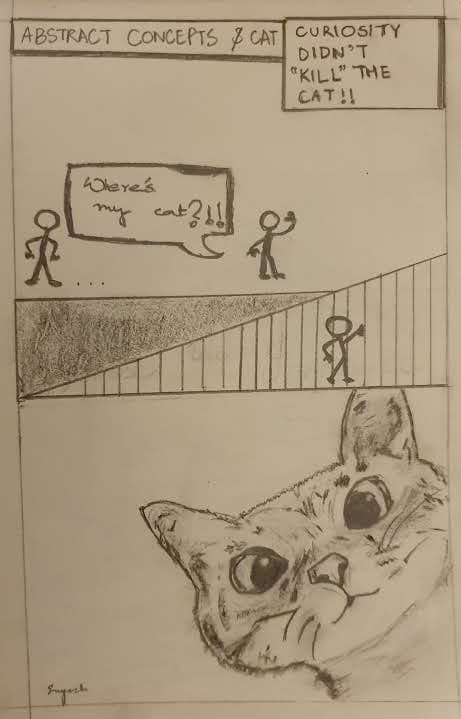 ABSTRACT CONCEPTS & CAT
CURIOSITY
DIDN'T
"KILL" THE
CAT!!
Where's
my cat?!!
....